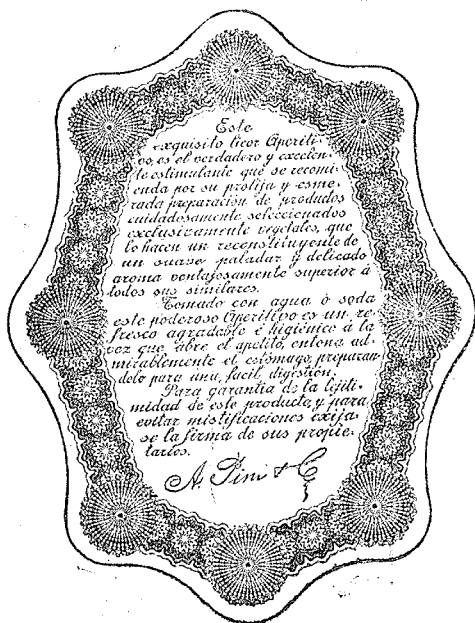 Este
exquisito licor Aperiti-
vo, es el verdadero y excelen-
te estimulante que se recomi-
enda por su prolija y esme-
rada preparación de productos
cuidadosamente seleccionados
exclusivamente vegetales, que
lo hacen un reconstituyente de
un suave paladar y delicado
aroma ventajosamente superior á
todos sus similares.
Tomado con agua ò soda
este poderoso Aperitivo es un re-
fresco agradable é higiénico á la
vez que abre el apetito, entona ad-
mirablemente el estómago, preparan-
dolo para una, facil, digestión.
Para garantia de la lejiti-
midad de este producto, y para
evitar mistificaciones exija-
se la firma de sus propie-
tarios.
A. Pini & C